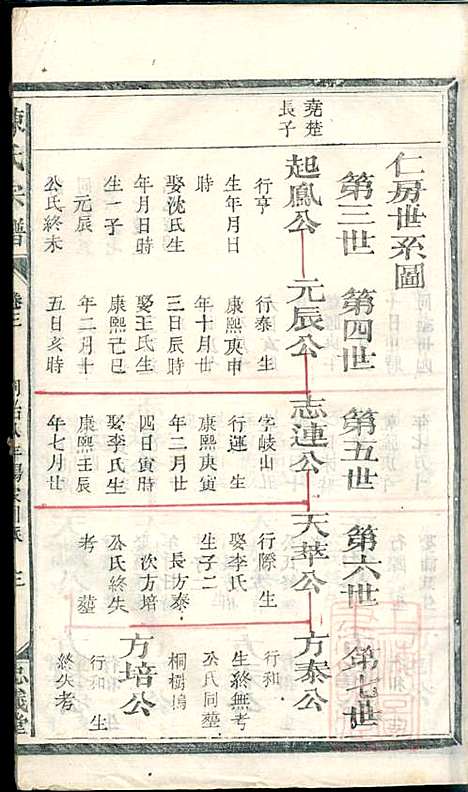 仁房世系圖
第三世
第四世
第五世
第六世
第七世
堯楚
長子
起鳳公
行亨
生年月日
時
娶沈氏生
年月日時
生一子
元辰
公氏終未
元辰公
行泰生
康熙庚申
年十月廿
三日辰時
娶王氏生
康熙己巳
年二月十
五日亥時
志連公
字岐山
行運生
康熙庚寅
年二月廿
四日寅時
娶李氏生
康熙壬辰
年七月廿
天萃公
行際生
娶李氏
生子二
長方泰
次方培
公氏終失
考塟
方泰公
行和
生終無考
公氏同塟
桐樹塢
方培公
行和生
終失考
陳氏宗譜
卷三
三
忠義堂